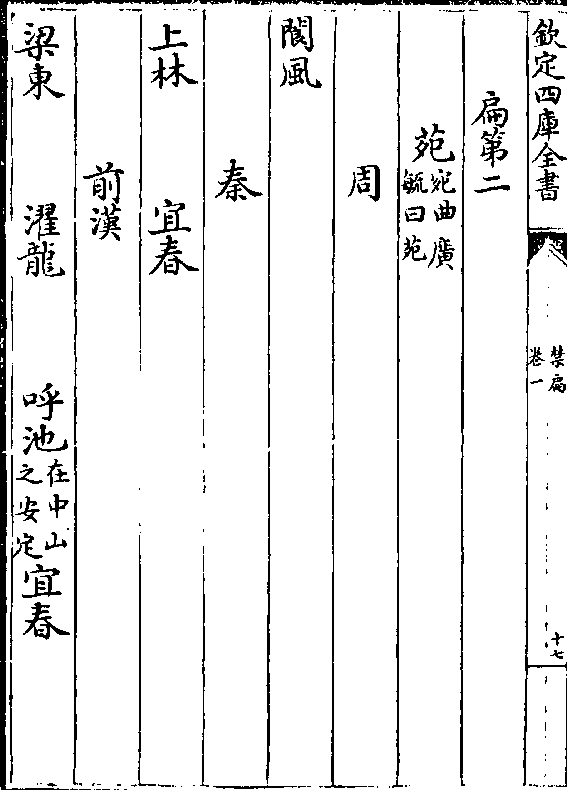 欽定四庫全書
禁扁
卷一
十七
扁第二
苑宛曲廣
毓曰苑
周
閬風
秦
上林 宜春
前漢
梁東 濯龍 呼池在中山
之安定宜春